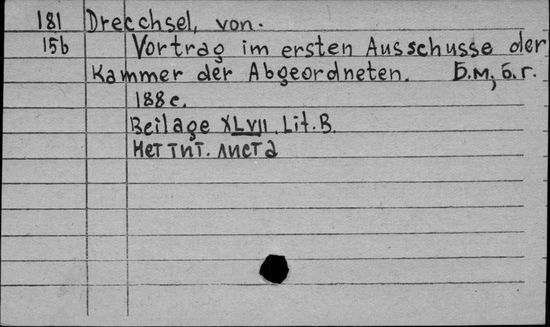 181 Drechsel, von.
15b Vortrag im ersten Ausschusse der
Kammer der Abgeordneten. Б.м, б.г.
188 с.
Beilage XLVII. Lit. B.
Нет тит. листа